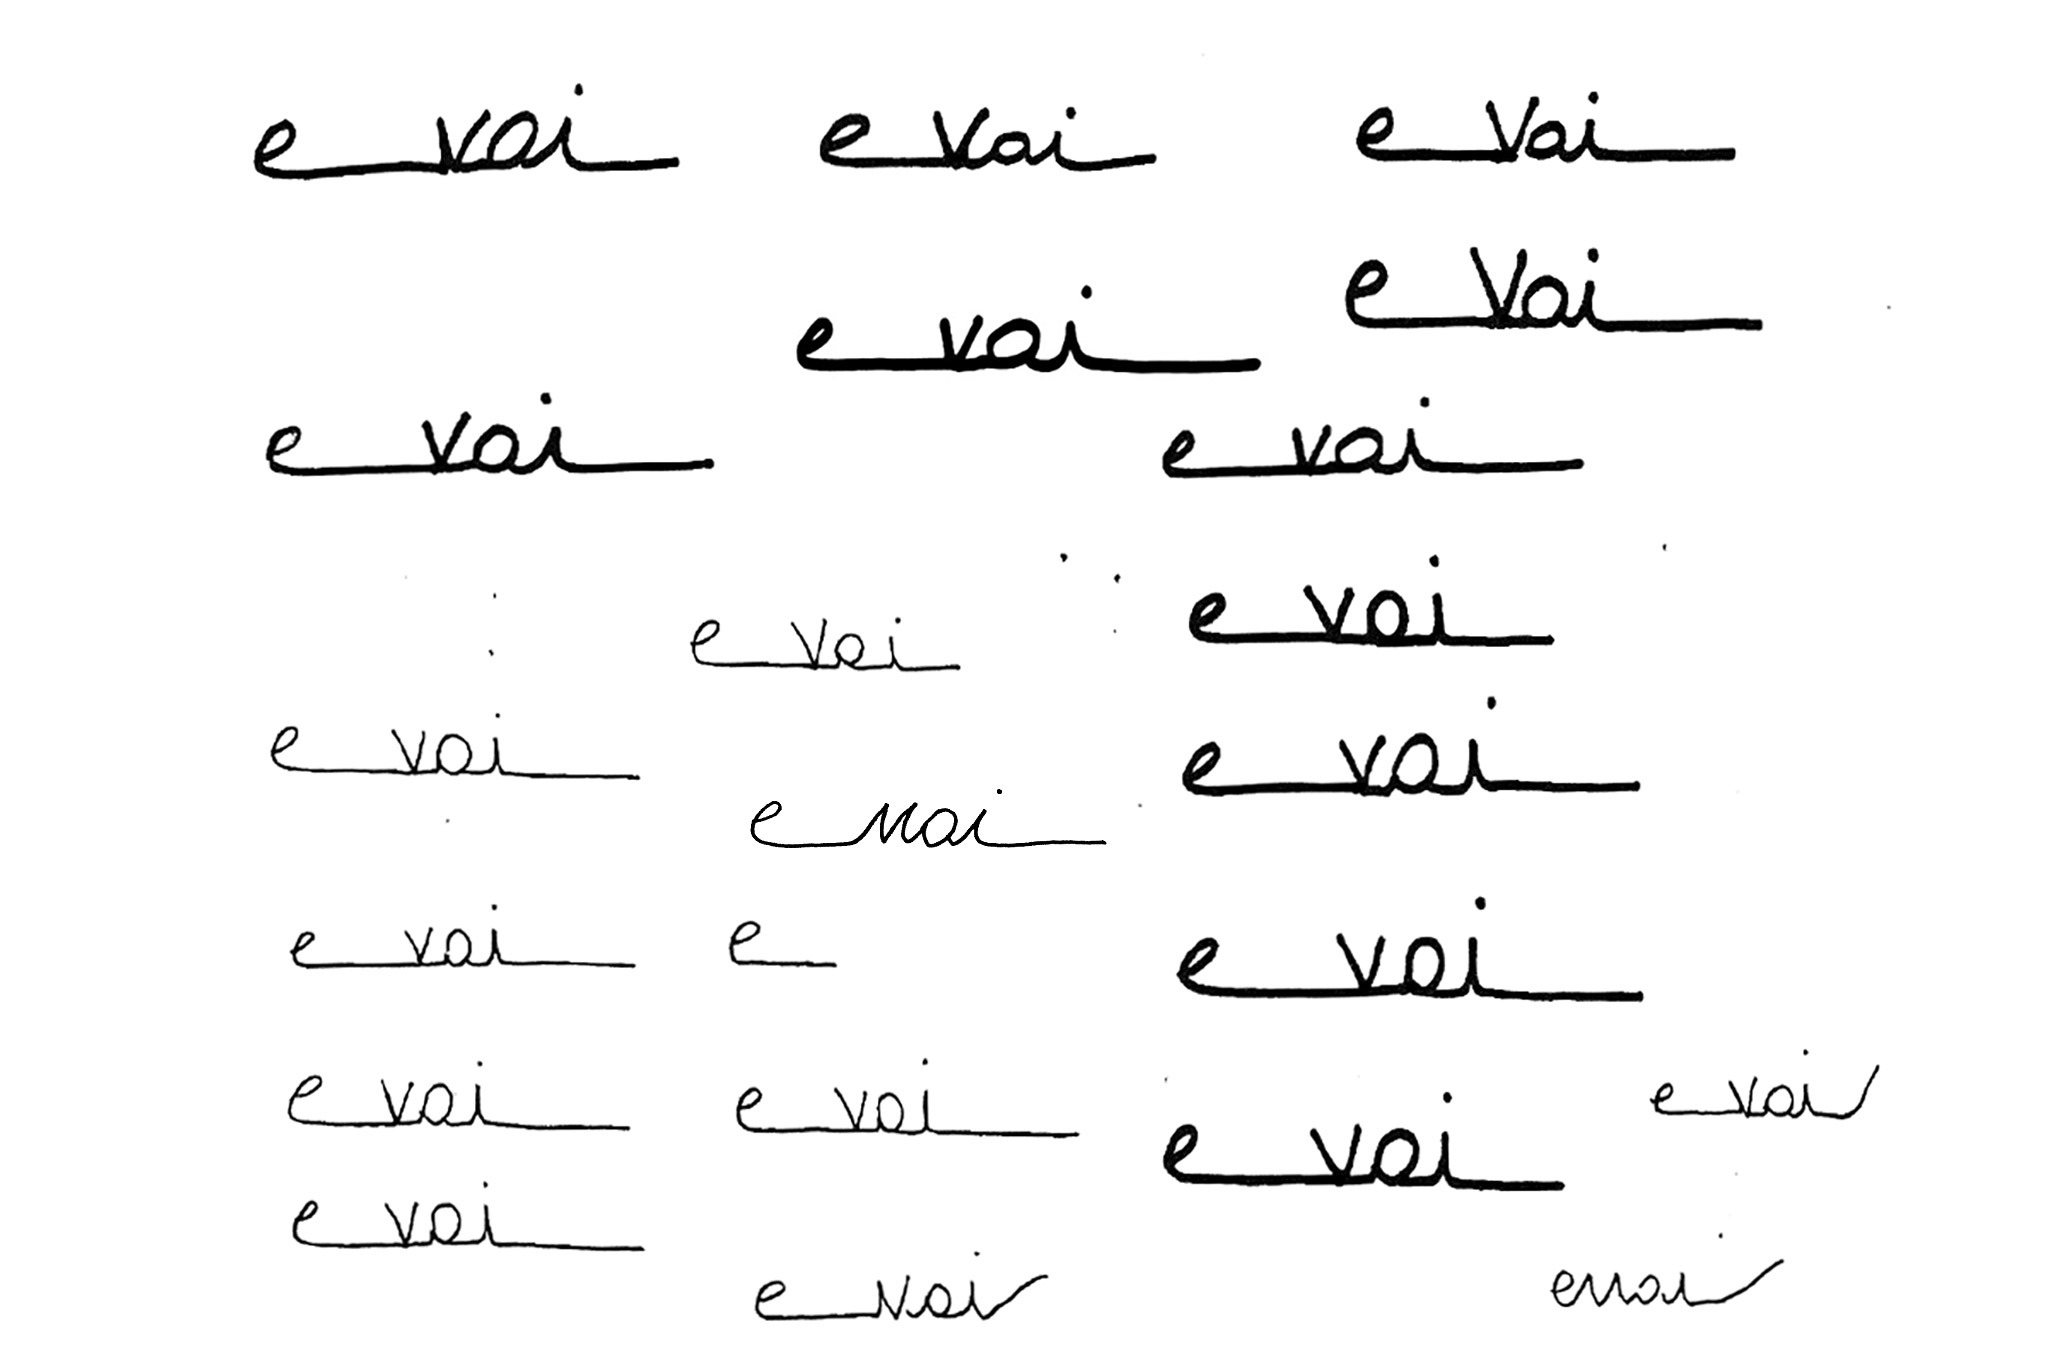 e vai e vai e vai
e vai
e vai
e vai e vai
e vai
e vai
e vai
e vai
e vai
e vai e
e vai
e vai e vai e vai
e vai
e vai
e vai e vai